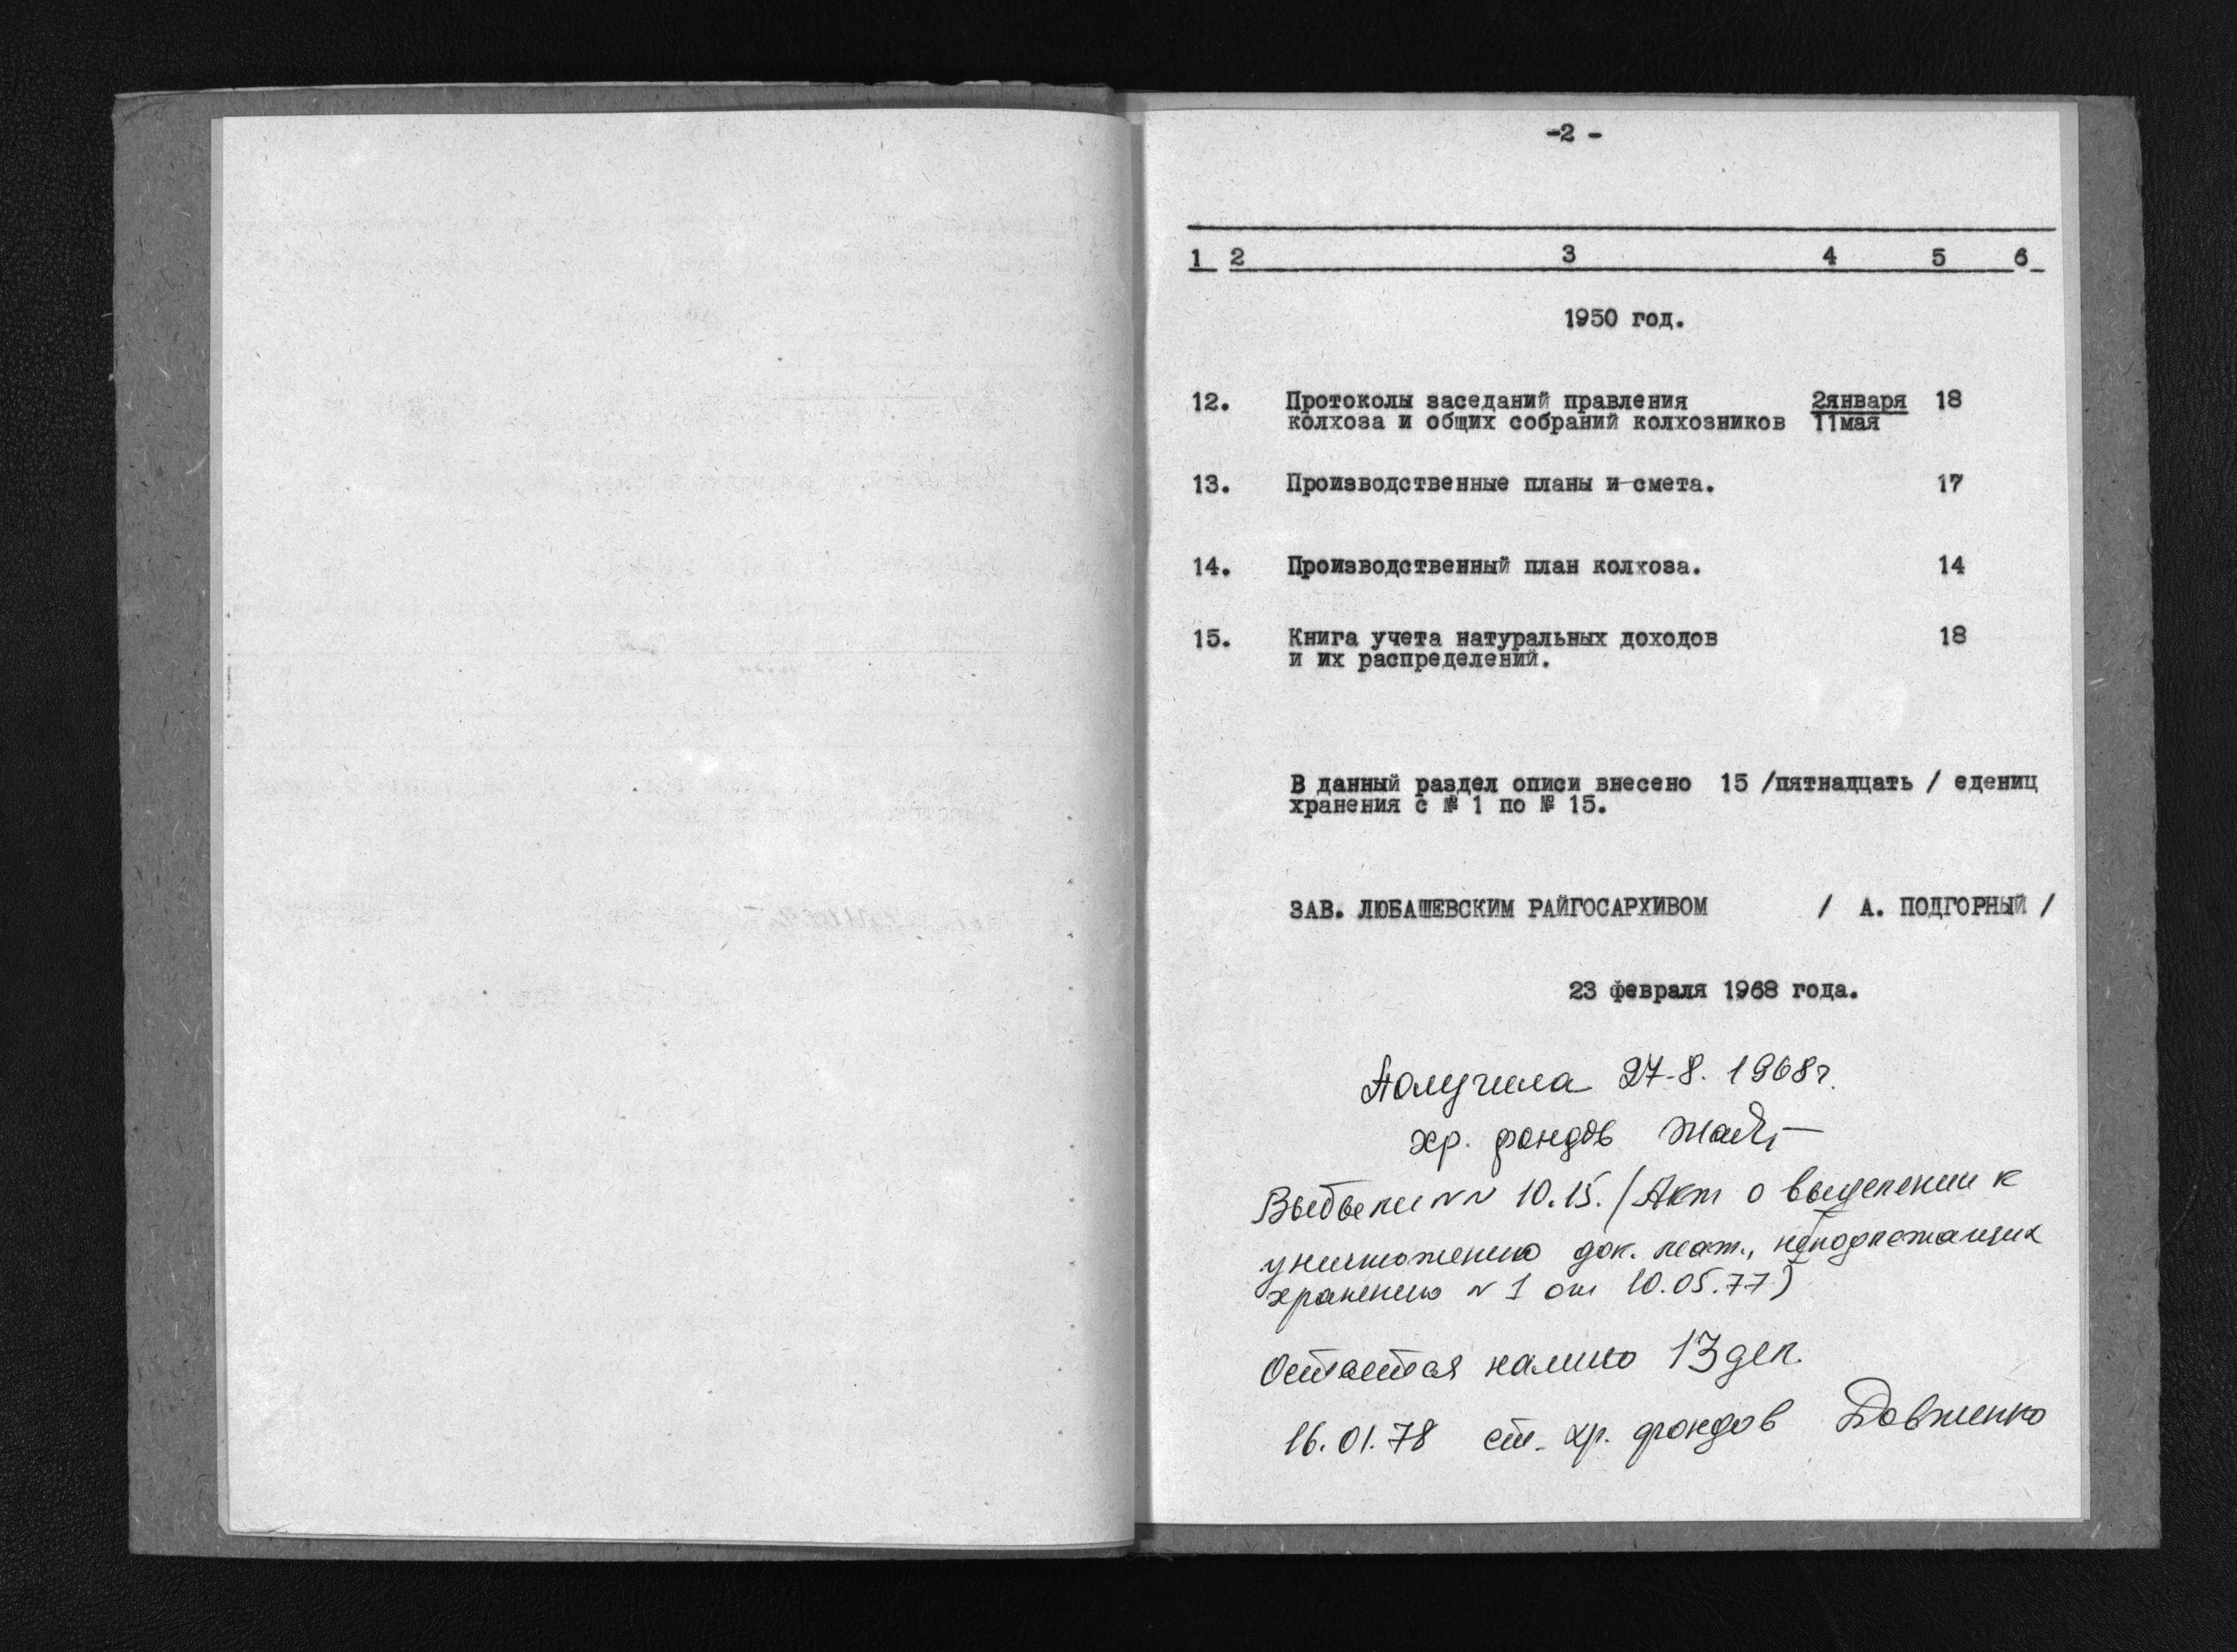 -2 -
1 2 3 4 5 6
1950 год.
12. Протоколы заседаний правления 2января 18
колхоза и общих собраний колхозников 11мая
13. Производственные планы и смета. 17
14. Производственный план колхоза. 14
15. Книга учета натуральных доходов 18
и их распределений.
В данный раздел описи внесено 15 /пятнадцать / едениц
хранения с № 1 по № 15.
ЗАВ. ЛЮБАШЕВСКИМ РАЙГОСАРХИВОМ / А. ПОДГОРНЫЙ /
23 февраля 1968 года.
Получила 27-8. 1968г.
хр. фондов
Выбыли NN 10.15. (Акт о выделении к
уничтожению док. мат., неподлежащих
хранению N 1 от 10.05.77)
Остается налицо 13 дел.
16.01.78 ст. хр. фондов Довженко